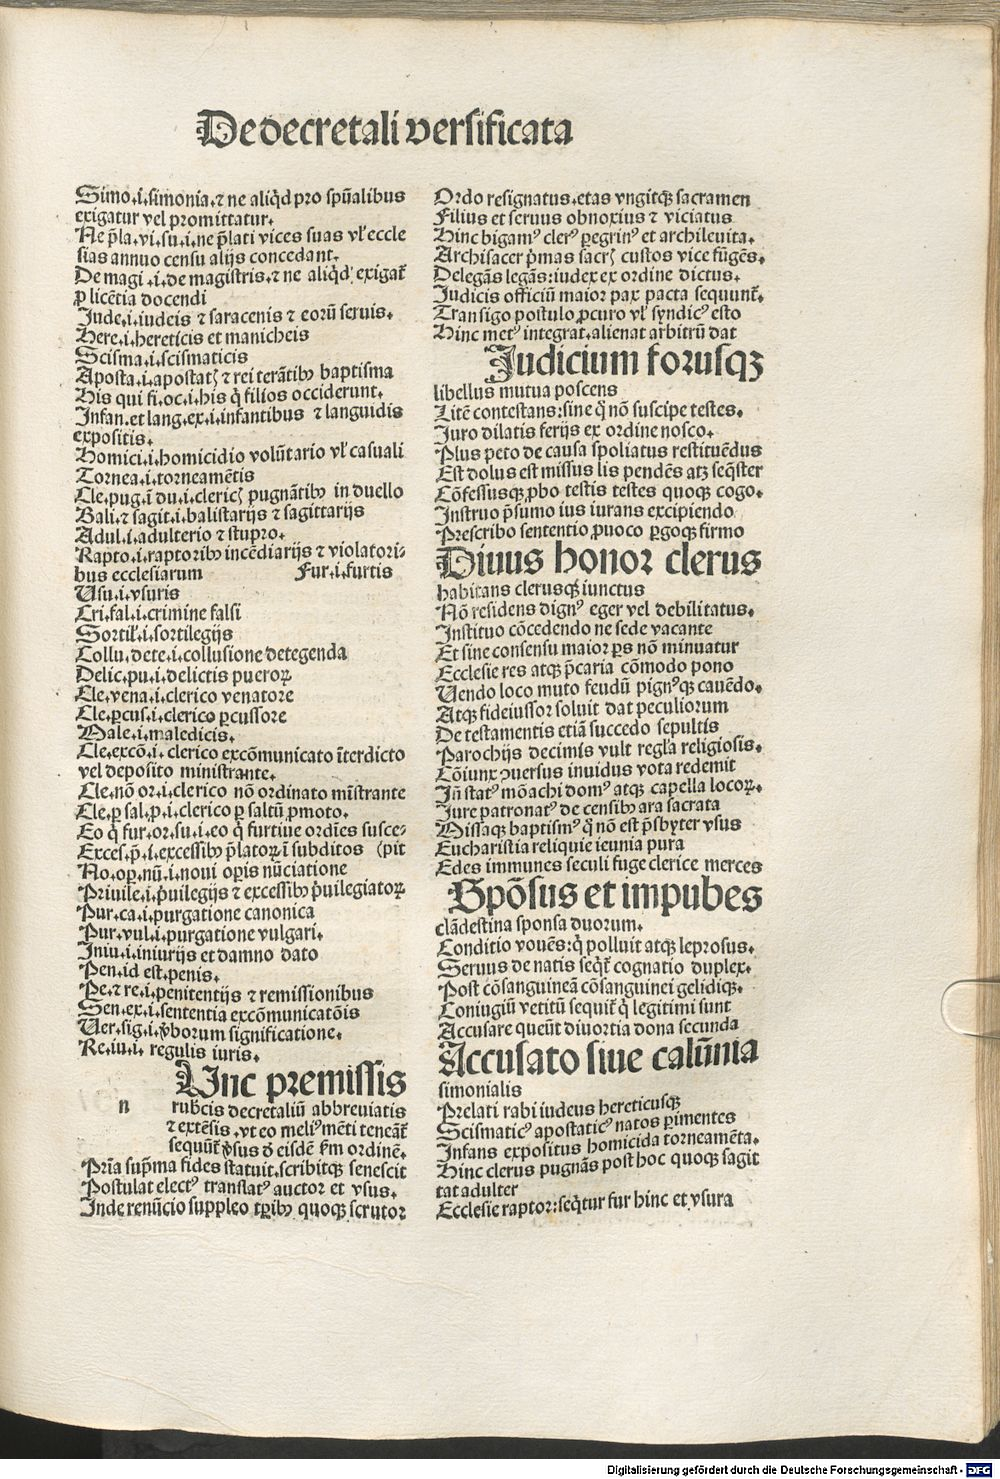 De decretali versificata
Simo.i.simonia.⁊ ne aliq̄d pro spūalibus
exigatur vel promittatur.
Ne p̄la.vi.su.i.ne p̄lati vices suas vl̕ eccle
sias annuo censu alijs concedant.
De magi .i.de magistris.⁊ ne aliq̄d exigat̄
ꝓ licētia docendi
Jude.i.iudeis ⁊ saracenis ⁊ eorū seruis.
Here.i.hereticis et manicheis
Scisma.i.scismaticis
Aposta.i.apostatꝭ ⁊ rei terātibꝰ baptisma
His qui fi.oc.i.his q̄ filios occiderunt.
Infan.et lang.ex.i.infantibus ⁊ languidis
expositis.
Homici.i.homicidio volūtario vl̕ casuali
Tornea.i.torneamētis
Cle.pug.ī du.i.clericꝭ pugnātibꝰ in duello
Bali.⁊ sagit.i.balistarijs ⁊ sagittarijs
Adul.i.adulterio ⁊ stupro.
Rapto.i.raptoribꝰ incēdiarijs ⁊ violatori-
bus ecclesiarum Fur.i.furtis
Usu.i.vsuris
Cri.fal.i.crimine falsi
Sortil̕.i.sortilegijs
Collu.dete.i.collusione detegenda
Delic.pu.i.delictis pueroꝝ
Cle.vena.i.clerico venatore
Cle.ꝑcus.i.clerico ꝑcussore
Male.i.maledicis.
Cle.excō.i.clerico excōmunicato īterdicto
vel deposito ministrante.
Cle.nō or.i.clerico nō ordinato mīstrante
Cle.ꝑ sal.ꝓ.i.clerico ꝑ saltū ꝓmoto.
Eo q̄ fur.or.su.i.eo q̄ furtiue ordīes susce-
Exces.p̄.i.excessibꝰ p̄latoꝝ ī subditos (pit
No.oꝑ.nū.i.noui oꝑis nūciatione
Priuile.i.p̄uilegijs ⁊ excessibꝰ p̄uilegiatoꝝ
Pur.ca.i.purgatione canonica
Pur.vul.i.purgatione vulgari.
Iniu.i.iniurijs et damno dato
Pen.id est.penis.
Pe.⁊ re.i.penitentijs ⁊ remissionibus
Sen.ex.i.sententia excōmunicatōis
Ver.sig.i.v̄borum significatione.
Re.iu.i. regulis iuris.
Unc premissis
n rubricis decretaliū abbreuiatis
⁊ extēsis.vt eo meliꝰ mēti teneāt̄
sequūt̄ v̄sus d̄ eisdē ẜm ordinē.
Pria sup̄ma fides statuit.scribitqꝫ senescit
Postulat electꝰ translatꝰ auctor et vsus.
Inde renūcio suppleo tꝑibꝰ quoqꝫ scrutor
Ordo resignatus.etas vngitqꝫ sacramen
Filius et seruus obnoxius ⁊ viciatus
Hinc bigamꝰ clerꝰ ꝑegrinꝰ et archileuita.
Archisacer p̄mas sacrꝭ custos vice fūgēs.
Delegās legās:iudex ex ordine dictus.
Judicis officiū maior pax pacta sequunt̄.
Transigo postulo ꝓcuro vl̕ syndicꝰ esto
Hinc metꝰ integrat.alienat arbitrū dat
Judicium forusqꝫ
libellus mutua poscens
Litē contestans:sine q̄ nō suscipe testes.
Juro dilatis ferijs ex ordine nosco.
Plus peto de causa spoliatus restituēdus
Est dolus est missus lis pendēs atqꝫ seq̄ster
Cōfessusqꝫ ꝓbo testis testes quoqꝫ cogo.
Instruo p̄sumo ius iurans excipiendo
Prescribo sententio ꝓuoco ꝑgoqꝫ firmo
Diuus honor clerus
habitans clerusqꝫ iunctus
Nō residens dignꝰ eger vel debilitatus.
Instituo cōcedendo ne sede vacante
Et sine consensu maior ꝑs nō minuatur
Ecclesie res atqꝫ p̄caria cōmodo pono
Vendo loco muto feudū pignꝰqꝫ cauēdo.
Atqꝫ fideiussor soluit dat peculiorum
De testamentis etiā succedo sepultis
Parochijs decimis vult regla religiosis.
Cōiunx ꝯuersus inuidus vota redemit
Jn̄ statꝰ mōachi domꝰ atqꝫ capella locoꝝ.
Jure patronatꝰ de censibꝰ ara sacrata
Missaqꝫ baptismꝰ q̄ nō est p̄sbyter vsus
Eucharistia reliquie ieunia pura
Edes immunes seculi fuge clerice merces
Spōsus et impubes
clādestina sponsa duorum.
Conditio vouēs:q̄ polluit atqꝫ leprosus.
Seruus de natis seq̄t̄ cognatio duplex.
Post cōsanguineā cōsanguinei gelidiqꝫ.
Coniugiū vetitū sequit̄ q̄ legitimi sunt
Accusare queūt diuortia dona secunda
Accusato siue calūnia
simonialis
Prelati rabi iudeus hereticusqꝫ
Scismaticꝰ apostaticꝰ natos ꝑimentes
Infans expositus homicida torneamēta.
Hinc clerus pugnās post hoc quoqꝫ sagit
tat adulter
Ecclesie raptor:seq̄tur fur hinc et vsura
Digitalisierung gefördert durch die Deutsche Forschungsgemeinschaft - DFG